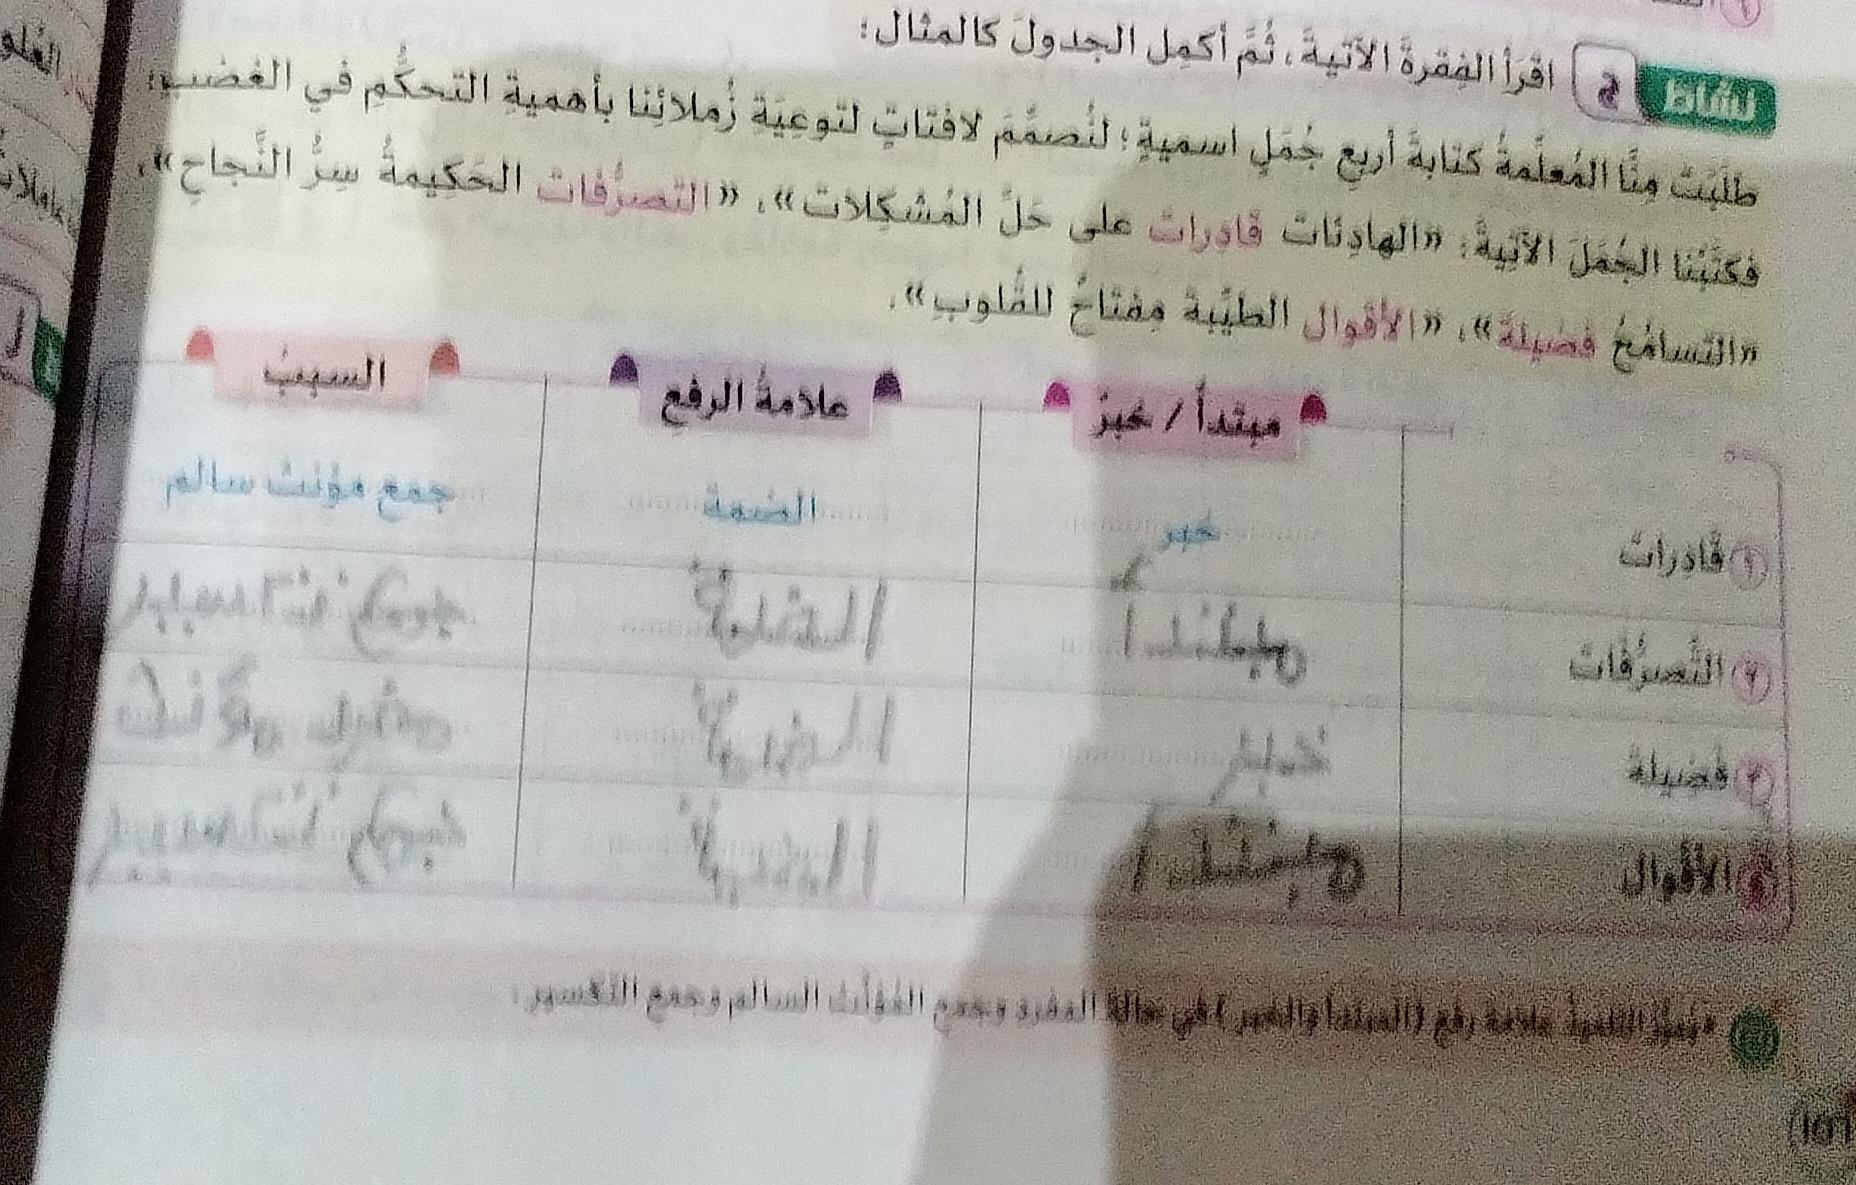 نشاط ج اقرأ الفِقرةَ الآتيةَ، ثُمَّ أكمِل الجدولَ كالمثال:
طلَبَتْ مِنَّا المُعلِّمةُ كتابةَ أربعِ جُمَلٍ اسميةٍ؛ لنُصمِّمَ لافتاتٍ لتوعيَةِ زُملائِنا بأهميةِ التحكُّمِ في الغضبِ؛
فكتَبْنا الجُمَلَ الآتِيةَ: «الهادِئاتُ قادِراتٌ على حَلِّ المُشكِلاتِ»، «التصرُّفاتُ الحَكِيمةُ سِرُّ النَّجاحِ»،
«التَّسامُحُ فَضِيلةٌ»، «الأقوال الطيِّبةُ مِفتاحٌ للقُلوبِ».
مبتدأ / خبرٌ علامةُ الرفعِ السببُ
١ قادِراتٌ خبر الضمة جمع مؤنث سالم
٢ التَّصرُّفاتُ مبتدأ الضمة جمع
٣ فضيلةٌ خبر الضمة مفرد
٤ الأقوال مبتدأ الضمة جمع
علامة رفع (المبتدأ والخبر) في حالة المفرد وجمع المُؤنَّث السالم وجمع التكسير.